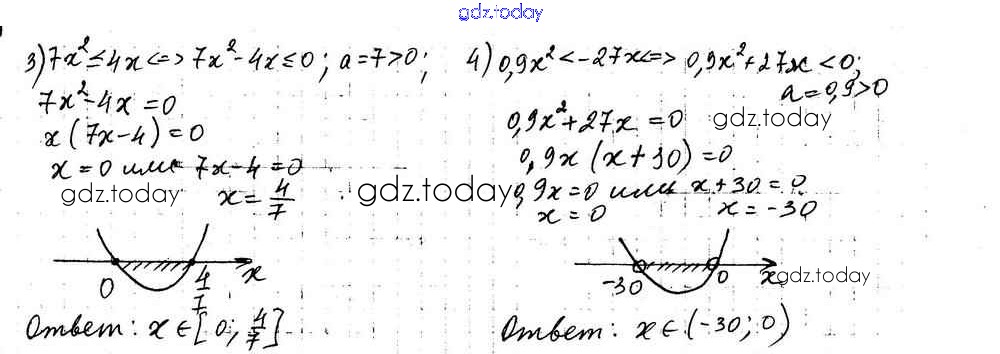 gdz.today
3) 7x² ≤ 4x <=> 7x² - 4x ≤ 0; a = 7 > 0;
7x² - 4x = 0
x(7x - 4) = 0
x = 0 или 7x - 4 = 0
gdz.today x = 4/7
0 4/7 x
Ответ: x ∈ [0; 4/7]
4) 0,9x² < -27x <=> 0,9x² + 27x < 0;
a = 0,9 > 0
0,9x² + 27x = 0 gdz.today
0,9x(x + 30) = 0
gdz.today 0,9x = 0 или x + 30 = 0
x = 0 x = -30
-30 0 x gdz.today
Ответ: x ∈ (-30; 0)